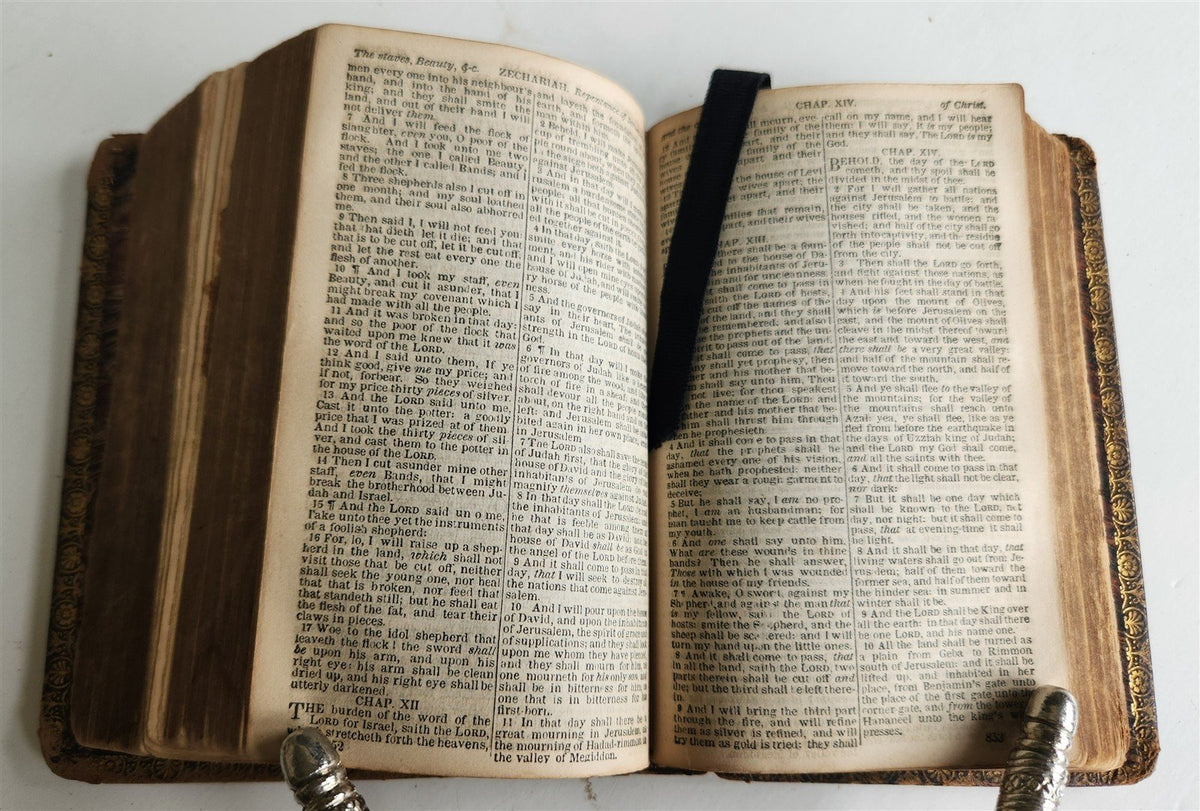 The staves, Beauty, &c. ZECHARIAH. Repentance
men every one into his neighbour's
hand, and into the hand of his
king: and they shall smite the
land, and out of their hand I will
not deliver them.
7 And I will feed the flock of
slaughter, even you, O poor of the
flock. And I took unto me two
staves; the one I called Beauty,
and the other I called Bands; and I
fed the flock.
8 Three shepherds also I cut off in
one month; and my soul loathed
them, and their soul also abhorred
me.
9 Then said I, I will not feed you:
that that dieth let it die; and that
that is to be cut off, let it be cut off;
and let the rest eat every one the
flesh of another.
10 ¶ And I took my staff, even
Beauty, and cut it asunder, that I
might break my covenant which I
had made with all the people.
11 And it was broken in that day:
and so the poor of the flock that
waited upon me knew that it was
the word of the LORD.
12 And I said unto them, If ye
think good, give me my price; and
if not, forbear. So they weighed
for my price thirty pieces of silver.
13 And the LORD said unto me,
Cast it unto the potter: a goodly
price that I was prized at of them.
And I took the thirty pieces of sil-
ver, and cast them to the potter in
the house of the LORD.
14 Then I cut asunder mine other
staff, even Bands, that I might
break the brotherhood between Ju-
dah and Israel.
15 ¶ And the LORD said un o me,
Take unto thee yet the instruments
of a foolish shepherd:
16 For, lo, I will raise up a shep-
herd in the land, which shall not
visit those that be cut off, neither
shall seek the young one, nor heal
that that is broken, nor feed that
that standeth still; but he shall eat
the flesh of the fat, and tear their
claws in pieces.
17 Woe to the idol shepherd that
leaveth the flock! the sword shall
be upon his arm, and upon his
right eye: his arm shall be clean
dried up, and his right eye shall be
utterly darkened.
CHAP. XII
THE burden of the word of the
LORD for Israel, saith the LORD,
stretcheth forth the heavens,
and layeth the
earth, and
him.
2 Behold, I will make
cup of trembling
round about, when
the siege
against Jerusalem.
3 And in that day
rusalem a
people: all that
with it shall be cut
all the people of the
ed together against it.
4 In that day, saith
smite every horse with
ment, and his rider with
and I will open mine
house of Judah, and will
ry horse of the people with
ness.
5 And the governors of Judah
say in their heart, The
ants of Jerusalem shall
strength in the LORD of hosts
God.
6 ¶ In that day will I make
governors of Judah like
of fire among the wood,
torch of fire in a sheaf;
shall devour all the people
about, on the right hand and on
left: and Jerusalem shall
bited again in her own place,
in Jerusalem.
7 The LORD also shall save the
of Judah first, that the glory of
house of David and the glory of
inhabitants of Jerusalem do
magnify themselves against Judah.
8 In that day shall the LORD
the inhabitants of Jerusalem; and
he that is feeble among them
that day shall be as David; and
house of David shall be as God
the angel of the LORD before them.
9 And it shall come to pass in
day, that I will seek to destroy all
the nations that come against Jeru-
salem.
10 And I will pour upon the house
of David, and upon the inhabitants
of Jerusalem, the spirit of grace and
of supplications: and they shall look
upon me whom they have pierced,
and they shall mourn for him, as
one mourneth for his only son,
shall be in bitterness for him,
one that is in bitterness for his
first-born.
11 In that day shall there be a
great mourning in Jerusalem, as
the mourning of Hadad-rimmon in
the valley of Megiddon.
CHAP. XIV. of Christ.
shall mourn, eve-
family of the
apart, and their
family of the
apart, and their
the house of Levi
wives apart; the
apart, and their
families that remain,
apart, and their wives
CHAP. XIII.
there shall be a foun-
ed to the house of Da-
the inhabitants of Jeru-
and for uncleanness.
it shall come to pass in
saith the LORD of hosts,
cut off the names of the
the land, and they shall
remembered: and also I
the prophets and the un-
spirit to pass out of the land.
it shall come to pass, that
any shall yet prophesy, then
her and his mother that be-
him shall say unto him, Thou
not live; for thou speakest
in the name of the LORD: and
father and his mother that be-
him shall thrust him through
when he prophesieth.
4 And it shall con e to pass in that
day, that the pr phets shall be
ashamed every one of his vision,
when he hath prophesied; neither
shall they wear a rough garment to
deceive:
5 But he shall say, I am no pro-
phet, I am an husbandman; for
man taught me to keep cattle from
my youth.
6 And one shall say unto him,
What are these wounds in thine
hands? Then he shall answer,
Those with which I was wounded
in the house of my friends.
7 ¶ Awake, O sword, against my
Shepherd, and against the man that
is my fellow, saith the LORD of
hosts: smite the Shepherd, and the
sheep shall be scattered: and I will
turn my hand upon the little ones.
8 And it shall come to pass, that
in all the land, saith the LORD, two
parts therein shall be cut off and
die; but the third shall be left there-
in.
9 And I will bring the third part
through the fire, and will refine
them as silver is refined, and will
try them as gold is tried: they shall
call on my name, and I will hear
them: I will say, It is my people;
and they shall say, The LORD is my
God.
CHAP. XIV.
BEHOLD, the day of the LORD
cometh, and thy spoil shall be
divided in the midst of thee.
2 For I will gather all nations
against Jerusalem to battle; and
the city shall be taken, and the
houses rifled, and the women ra-
vished; and half of the city shall go
forth into captivity, and the residue
of the people shall not be cut off
from the city.
3 Then shall the LORD go forth,
and fight against those nations, as
when he fought in the day of battle.
4 And his feet shall stand in that
day upon the mount of Olives,
which is before Jerusalem on the
east, and the mount of Olives shall
cleave in the midst thereof toward
the east and toward the west, and
there shall be a very great valley:
and half of the mountain shall re-
move toward the north, and half of
it toward the south.
5 And ye shall flee to the valley of
the mountains; for the valley of
the mountains shall reach unto
Azal: yea, ye shall flee, like as ye
fled from before the earthquake in
the days of Uzziah king of Judah;
and the LORD my God shall come,
and all the saints with thee.
6 And it shall come to pass in that
day, that the light shall not be clear,
nor dark:
7 But it shall be one day which
shall be known to the LORD, not
day, nor night: but it shall come to
pass, that at evening-time it shall
be light.
8 And it shall be in that day, that
living waters shall go out from Je-
rusalem; half of them toward the
former sea, and half of them toward
the hinder sea: in summer and in
winter shall it be.
9 And the LORD shall be King over
all the earth: in that day shall there
be one LORD, and his name one.
10 All the land shall be turned as
a plain from Geba to Rimmon
south of Jerusalem: and it shall be
lifted up, and inhabited in her
place, from Benjamin's gate unto
the place of the first gate unto the
corner-gate, and from the tower
Hananeel unto the king's
presses.
853